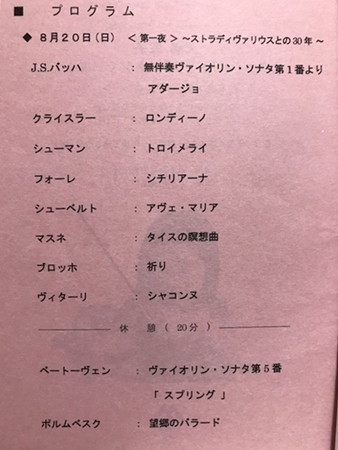 ■ プログラム
◆ 8月20日(日) <第一夜> ～ストラディヴァリウスとの30年～
J.S.バッハ : 無伴奏ヴァイオリン・ソナタ第1番より
アダージョ
クライスラー : ロンディーノ
シューマン : トロイメライ
フォーレ : シチリアーナ
シューベルト : アヴェ・マリア
マスネ : タイスの瞑想曲
ブロッホ : 祈り
ヴィターリ : シャコンヌ
休 憩 (20分)
ベートーヴェン : ヴァイオリン・ソナタ第5番
「スプリング」
ポルムベスク : 望郷のバラード